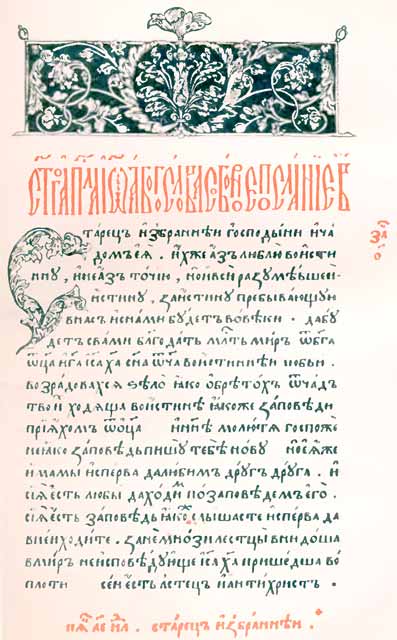 СТ҃ГО АП҃ЛА ІѠ҃А БОГОСЛОВА СЪБОРНОЕ ПОСЛАНІЕ В҃
за҃
Старецъ и҆збраннѣи господыни и҆ча
домъ еѧ . и҆хже а҆зъ люблю воисти
ннꙋ , и҆ не а҆зъ точїю , но и҆ вси разꙋмѣвшеи
и҆стинꙋ , за и҆стинꙋ пребывающꙋю
в насъ и҆ с нами бꙋдетъ вовѣки . да бꙋ
детъ с вами бл҃годать мл҃ть миръ ѿ бг҃а
ѿц҃а и҆ г҃а і҆с҃а х҃а сн҃а ѿч҃а во и҆стиннѣи любви .
возрадовахсѧ ѕѣло ꙗ҆ко ѡ҆брѣтохъ ѿ чадъ
твои ходѧща во и҆стинѣ ꙗ҆коже заповѣди
прїѧхомъ ѿ ѿц҃а и҆ нн҃ѣ молютисѧ госпоже
не ꙗ҆ко заповѣдь пишꙋ тебѣ новꙋ но ю҆же
и҆мамы и҆сперва да любимъ дрꙋгъ дрꙋга . и҆
сїѧ е҆сть любы да ходимъ по заповѣдемъ е҆го .
сїѧ е҆сть заповѣдь ꙗ҆коже слышасте и҆сперва да
в неи ходите . зане мнози лестцы внидоша
в миръ не и҆сповѣдꙋюще і҆с҃а х҃а пришедша во
плоти сеи е҆сть лстецъ и҆ а҆нтихристъ .
старецъ и҆збраннѣи .